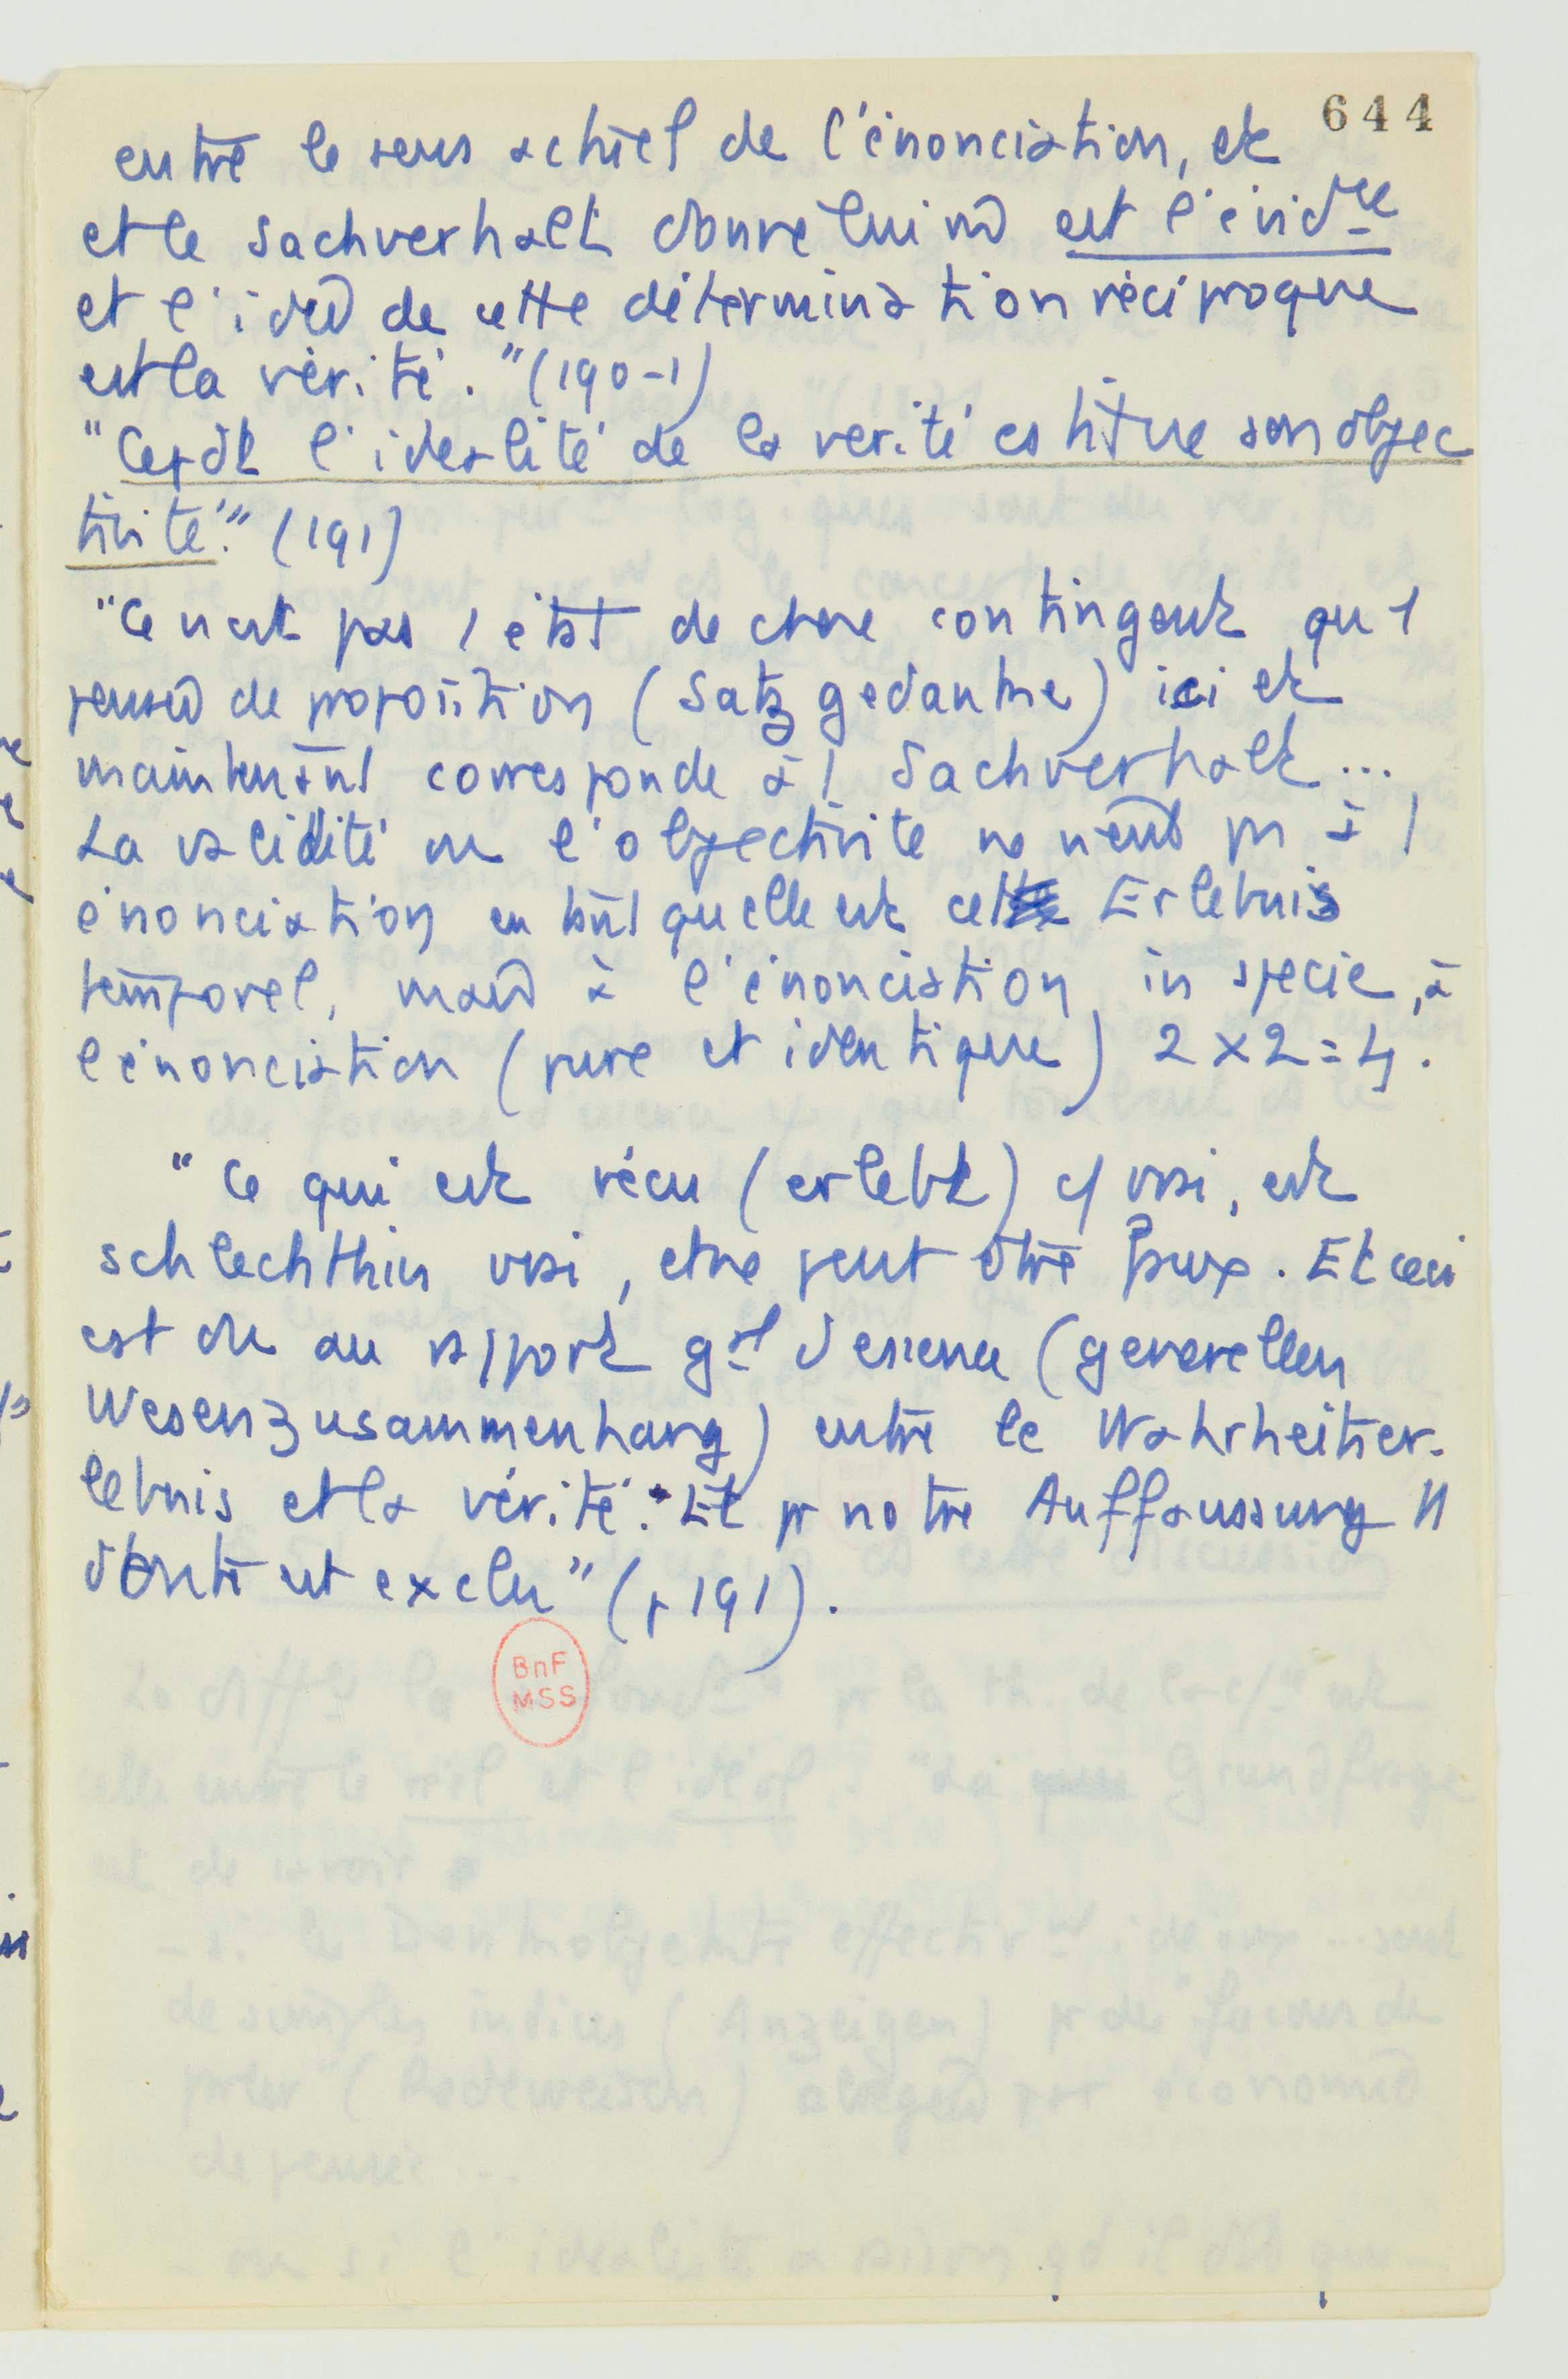 644
entre le sens actuel de l'énonciation, et
et le Sachverhalt donné lui m̂ est l'évidce
et l'idée de cette détermination réciproque
est la vérité." (190-1)
"Cepdt l'idéalité de la vérité constitue son objec
tivité." (191)
"Ce n'est pas 1 état de chose contingent qu'1
pensée de proposition (Satzgedanke) ici et
maintenant corresponde à 1 Sachverhalt...
La validité ou l'objectivité ne vient pas à 1
énonciation en tant qu'elle est cet Erlebnis
temporel, mais à l'énonciation in specie, à
l'énonciation (pure et identique) 2 x 2 = 4.
"Ce qui est vécu (erlebt) c/ vrai, est
schlechthin vrai, et ne peut être faux. Et ceci
est dû au rapport gal d'essence (generellen
Wesenzusammenhang) entre le Wahrheitser-
lebnis et la vérité. Et pr notre Auffaussung tt
doute est exclu" (p 191).
BnF
MSS